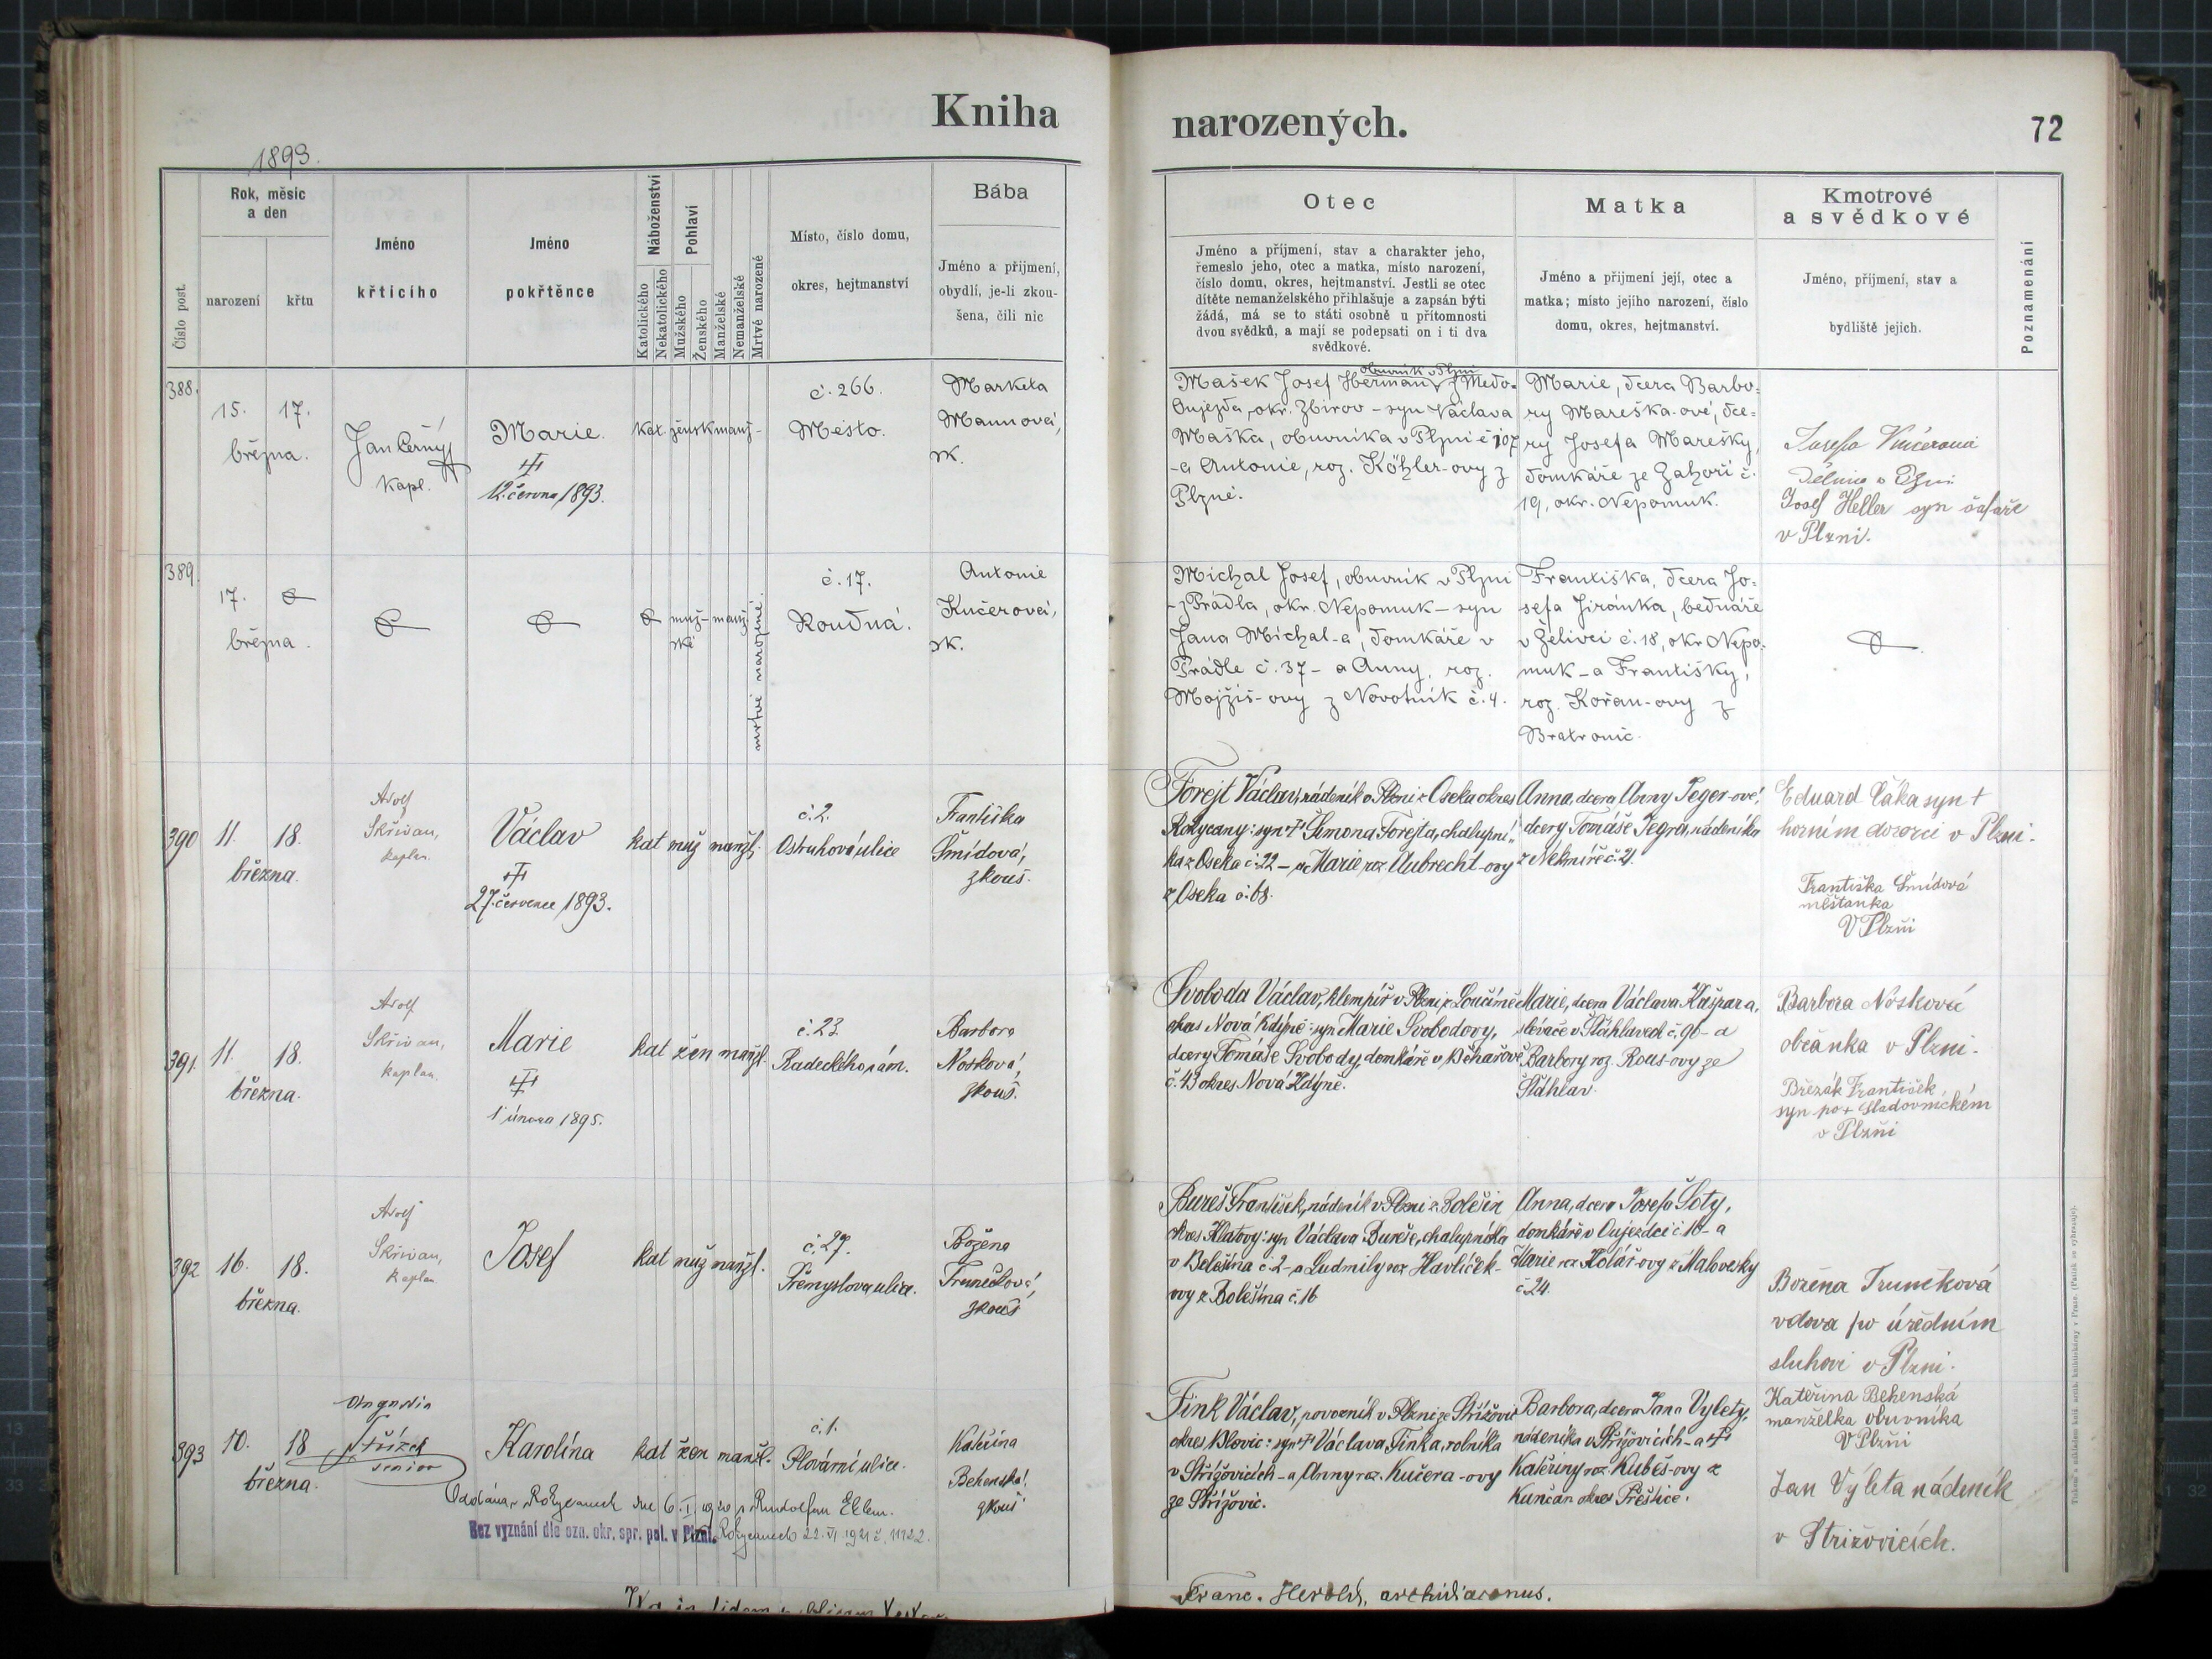 Kniha
narozených.
72
1893.
Číslo post.
Rok, měsíc
a den
narození
křtu
Jméno
křticího
Jméno
pokřtěnce
Náboženství
Katolického
Nekatolického
Pohlaví
Mužského
Ženského
Manželské
Nemanželské
Mrtvě narozené
Místo, číslo domu,
okres, hejtmanství
Bába
Jméno a přijmení,
obydlí, je-li zkou-
šena, čili nic
Otec
Jméno a příjmení, stav a charakter jeho,
řemeslo jeho, otec a matka, místo narození,
číslo domu, okres, hejtmanství. Jestli se otec
dítěte nemanželského přihlašuje a zapsán býti
žádá, má se to státi osobně u přítomnosti
dvou svědků, a mají se podepsati on i ti dva
svědkové.
Matka
Jméno a přijmení její, otec a
matka; místo jejího narození, číslo
domu, okres, hejtmanství.
Kmotrové
a svědkové
Jméno, příjmení, stav a
bydliště jejich.
Poznamenání
388.
15. 17.
března.
Jan Černý
kapl.
Marie.
12. června 1893.
kat. žensk manž-
č. 266.
Město.
Marketa
Mannová,
zk.
obuvník v Plzni
Mašek Josef Heřman z Medo-
Oujezda, okr. Zbirov - syn Václava
Maška, obuvníka v Plzni č 107
-a Antonie, roz. Köhler-ovy z
Plzně.
Marie, dcera Barbo-
ry Mareška-ové, dce-
ry Josefa Marešky,
domkáře ze Zahoří č.
19, okr. Nepomuk.
Josefa
v Plzni
Josef Heller syn šafáře
v Plzni.
389.
17.
března.
muž- manž.
ské
mrtvě narozené.
č. 17.
Roudná.
Antonie
Kučerová,
zk.
Michal Josef, obuvník v Plzni
- z Prádla, okr. Nepomuk - syn
Jana Michal-a, domkáře v
Prádle č. 37 - a Anny, roz.
Mojžíš-ovy z Novotník č. 4.
Františka, dcera Jo-
sefa Jiránka, bednáře
v Želivci č. 18, okr Nepo-
muk - a Františky,
roz. Kořan-ovy z
Bratronic.
390 11. 18.
března.
Adolf
Skřivan,
kaplan.
Václav
27. července 1893.
kat muž manžl.
č. 2.
Ostruhová ulice
Františka
Šmídová,
zkouš.
Forejt Václav, nádeník v Plzni z Oseka okres
Rokycany: syn † Šimona Forejta, chalupní-
ka z Oseka č. 22 - a Marie roz Aubrecht-ovy
z Oseka č. 68.
Anna, dcera Anny Jeger-ové,
dcery Tomáše Jegra, nádeníka
z Nekmíře č. 21.
Eduard Čáka syn †
horním dozorci v Plzni.
Františka Šmídová
měšťanka
V Plzni
391. 11. 18.
března.
Adolf
Skřivan,
kaplan.
Marie
1 února 1895.
kat žen manžl.
č. 23.
Radeckého nám.
Barbora
Nosková,
zkouš.
Svoboda Václav, klempíř v Plzni z Loučimě
okres Nová Kdýně: syn Marie Svobodovy,
dcery Tomáše Svobody, domkáře v Běhařově
č. 43 okres Nová Kdýně.
Marie, dcera Václava Kašpara,
slévače v Štáhlavech č. 96 - a
Barbory roz. Rous-ovy ze
Štáhlav.
Barbora Nosková
občanka v Plzni.
Březák František
syn po † sladovnickém
v Plzni
392 16. 18.
března.
Adolf
Skřivan,
kaplan
Josef
kat muž manžl.
č. 27.
Přemyslova ulice.
Božena
Trunečková,
zkouš
Bureš František, nádeník v Plzni z Bolešin
okres Klatovy: syn Václava Bureše, chalupníka
v Bolešina č. 2 - a Ludmily roz Havlíček-
ovy z Bolešina č. 16
Anna, dcera Josefa Šoty,
domkáře v Oujezdci č. 10 - a
Marie roz Kolář-ovy z Malovesky
č 24.
Božena Trunečková
vdova po úředním
sluhovi v Plzni.
393 10. 18
března.
Střízek
senior
Karolína
kat žen manžl.
č. 1.
Plovární ulice.
Kateřina
Behenská!
zkouš
Oddána v Rokycanech dne 6. I. 1920 s Rudolfem Eblem.
Bez vyznání dle ozn. okr. spr. pol. v Plzni. Rokycanech 22. VI. 1921 č. 11122.
Fink Václav, povozník v Plzni ze Střížovic
okres Blovic: syn † Václava Finka, rolníka
v Střížovicích - a Anny roz. Kučera-ovy
ze Střížovic.
Barbora, dcera Jana Vylety,
nádeníka v Střížovicích - a †
Kateřiny roz. Kubeš-ovy z
Kunčan okres Přeštice.
Kateřina Behenská
manželka obuvníka
V Plzni
Jan Výleta nádeník
v Střížovicích.
Franc. Herold, archidiaconus.